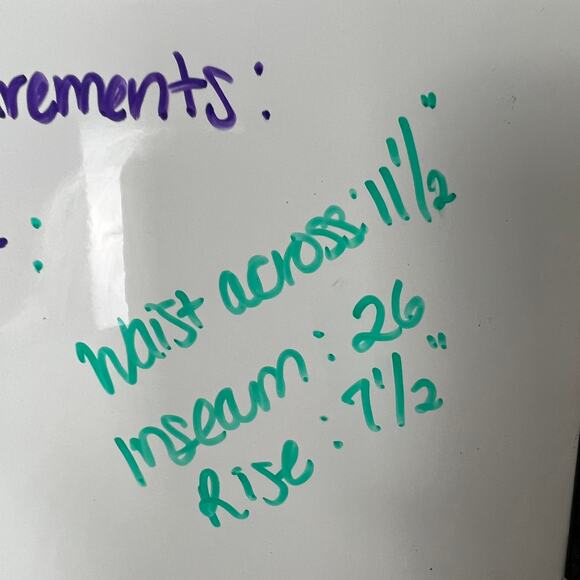 rements:
:
Waist across: 11 1/2"
Inseam: 26
Rise: 7 1/2"